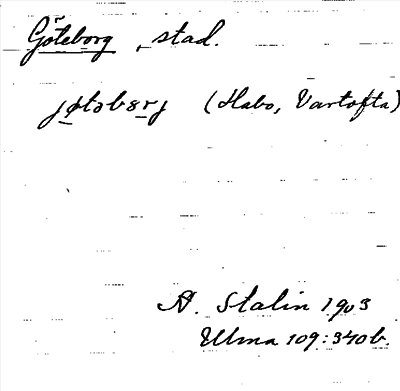 Göteborg, stad.
jøtəbərj (Habo, Vartofta)
A. Stalin 1903
Ulma 109:340b.